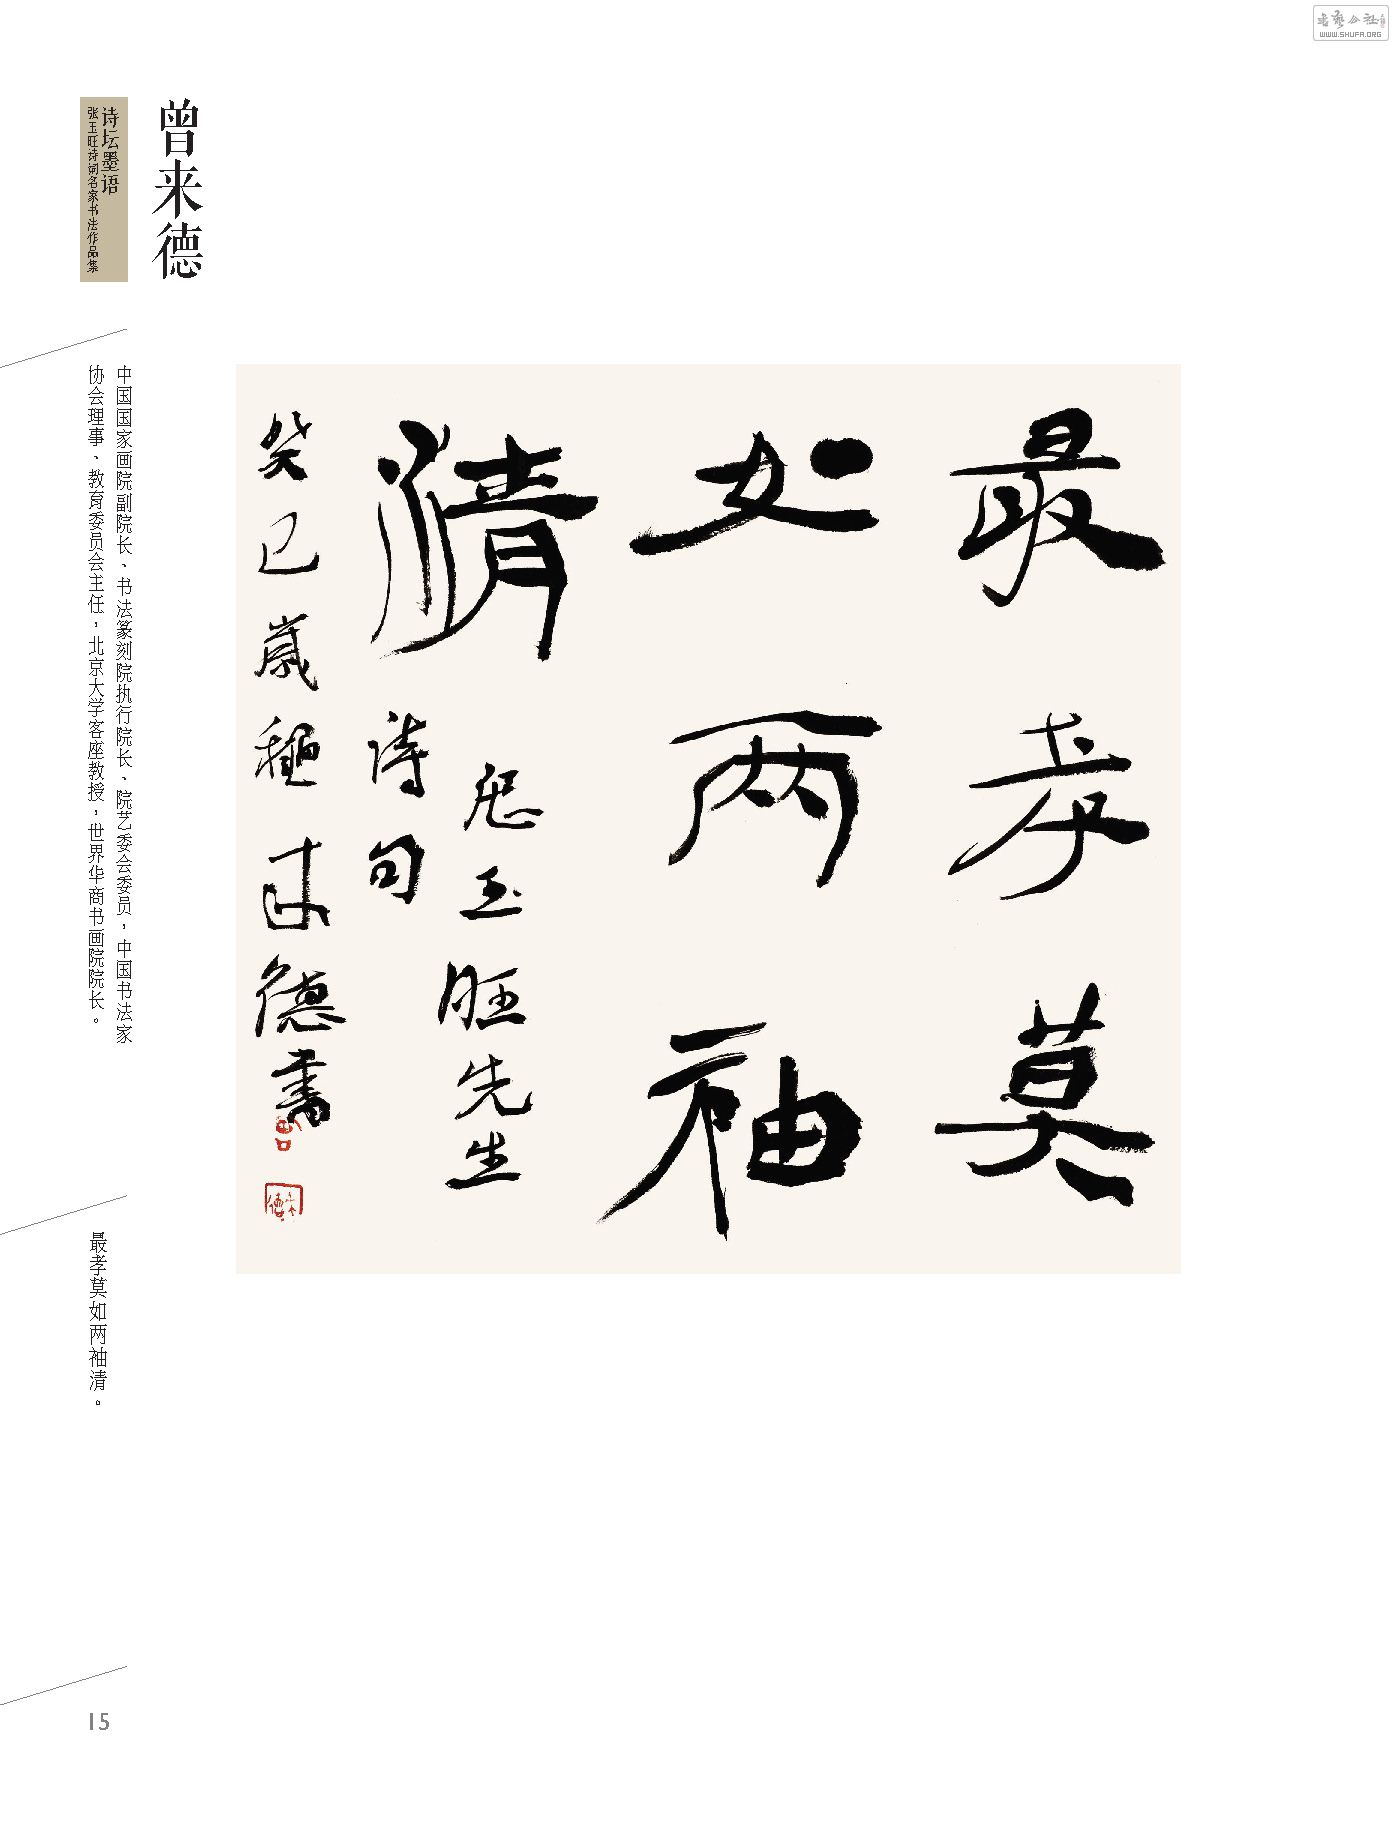 书艺公社
WWW.SHUFA.ORG
曾来德
诗坛墨语
张玉旺诗词名家书法作品集
中国国家画院副院长、书法篆刻院执行院长、院艺委会委员,中国书法家
协会理事、教育委员会主任,北京大学客座教授,世界华商书画院院长。
最孝莫
如两袖
清
玉旺先生
诗句
癸巳歲穐来德書
最孝莫如两袖清。
15